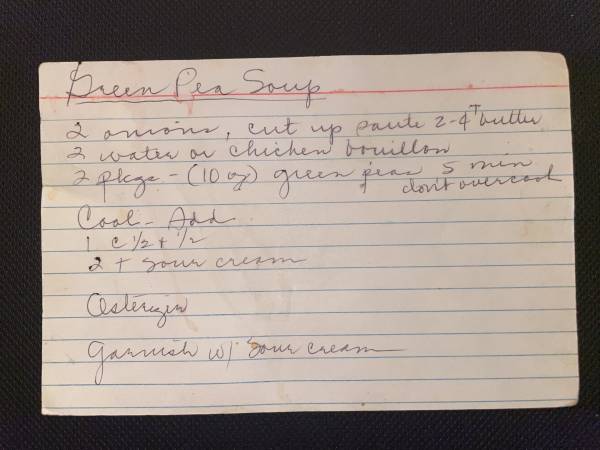 Green Pea Soup
2 onions, cut up saute 2-4 T butter
2 water or chicken bouillon
2 pkgs - (10 oz) green peas 5 min
don't overcook
Cool - Add
1 c 1/2 + 1/2
2 T sour cream
Osterizer
garnish w/ sour cream